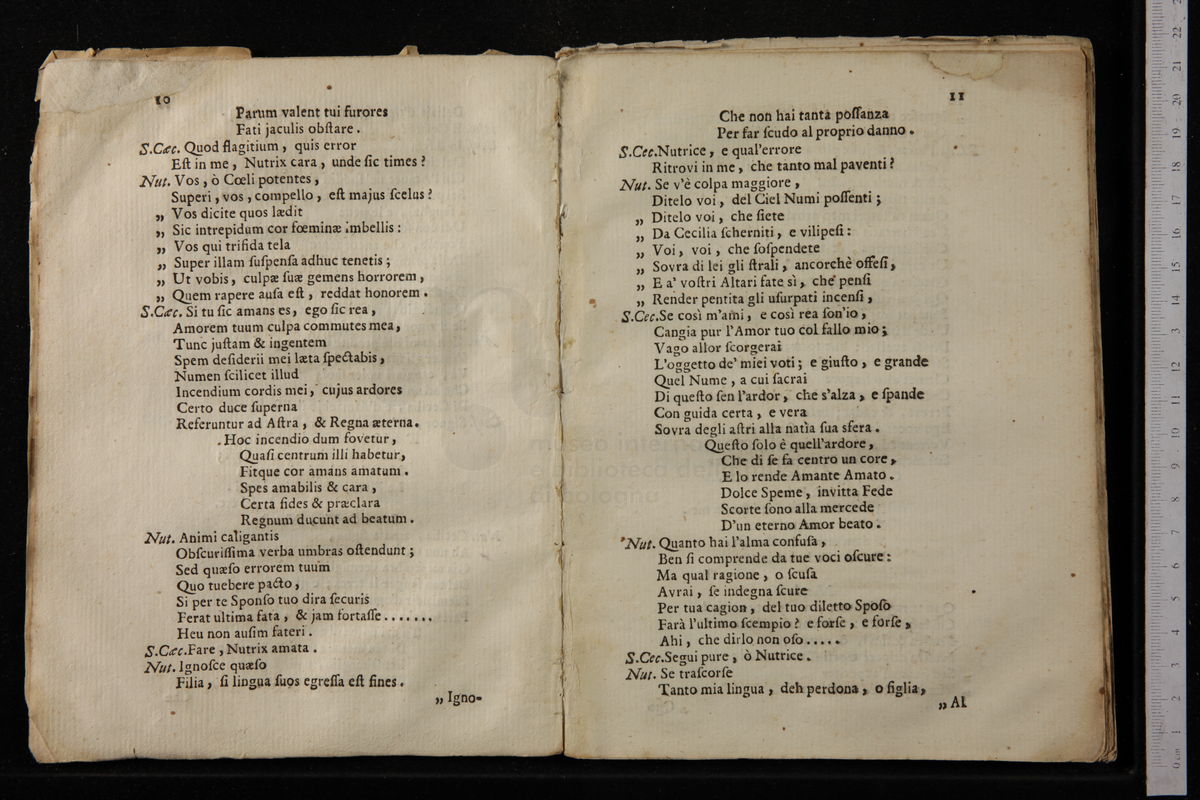 10
Parum valent tui furores
Fati jaculis obſtare .
S.Cæc. Quod flagitium , quis error
Eſt in me , Nutrix cara , unde ſic times ?
Nut. Vos , ò Cœli potentes ,
Superi , vos , compello , eſt majus ſcelus ?
„ Vos dicite quos lædit
„ Sic intrepidum cor fœminæ imbellis :
„ Vos qui trifida tela
„ Super illam ſuſpenſa adhuc tenetis ;
„ Ut vobis , culpæ ſuæ gemens horrorem ,
„ Quem rapere auſa eſt , reddat honorem .
S.Cæc. Si tu ſic amans es , ego ſic rea ,
Amorem tuum culpa commutes mea ,
Tunc juſtam & ingentem
Spem deſiderii mei læta ſpectabis ,
Numen ſcilicet illud
Incendium cordis mei , cujus ardores
Certo duce ſuperna
Referuntur ad Aſtra , & Regna æterna .
Hoc incendio dum fovetur ,
Quaſi centrum illi habetur ,
Fitque cor amans amatum .
Spes amabilis & cara ,
Certa fides & præclara
Regnum ducunt ad beatum .
Nut. Animi caligantis
Obſcuriſſima verba umbras oſtendunt ;
Sed quæſo errorem tuum
Quo tuebere pacto ,
Si per te Sponſo tuo dira ſecuris
Ferat ultima fata , & jam fortaſſe . . . . . . .
Heu non auſim fateri .
S.Cæc. Fare , Nutrix amata .
Nut. Ignoſce quæſo
Filia , ſi lingua ſuos egreſſa eſt fines .
„ Igno-
11
Che non hai tanta poſſanza
Per far ſcudo al proprio danno .
S.Cec. Nutrice , e qual'errore
Ritrovi in me , che tanto mal paventi ?
Nut. Se v'è colpa maggiore ,
Ditelo voi , del Ciel Numi poſſenti ;
„ Ditelo voi , che ſiete
„ Da Cecilia ſcherniti , e vilipeſi :
„ Voi , voi , che ſoſpendete
„ Sovra di lei gli ſtrali , ancorchè offeſi ,
„ E a' voſtri Altari fate sì , che penſi
„ Render pentita gli uſurpati incenſi ,
S.Cec. Se così m'ami , e così rea ſon'io ,
Cangia pur l'Amor tuo col fallo mio ;
Vago allor ſcorgerai
L'oggetto de' miei voti ; e giuſto , e grande
Quel Nume , a cui ſacrai
Di queſto ſen l'ardor , che s'alza , e ſpande
Con guida certa , e vera
Sovra degli aſtri alla natìa ſua sfera .
Queſto ſolo è quell'ardore ,
Che di ſe fa centro un core ,
E lo rende Amante Amato .
Dolce Speme , invitta Fede
Scorte ſono alla mercede
D'un eterno Amor beato .
Nut. Quanto hai l'alma confuſa ,
Ben ſi comprende da tue voci oſcure :
Ma qual ragione , o ſcuſa
Avrai , ſe indegna ſcure
Per tua cagion , del tuo diletto Spoſo
Farà l'ultimo ſcempio ? e forſe , e forſe ,
Ahi , che dirlo non oſo . . . . .
S.Cec. Segui pure , ò Nutrice .
Nut. Se traſcorſe
Tanto mia lingua , deh perdona , o figlia ,
„ Al